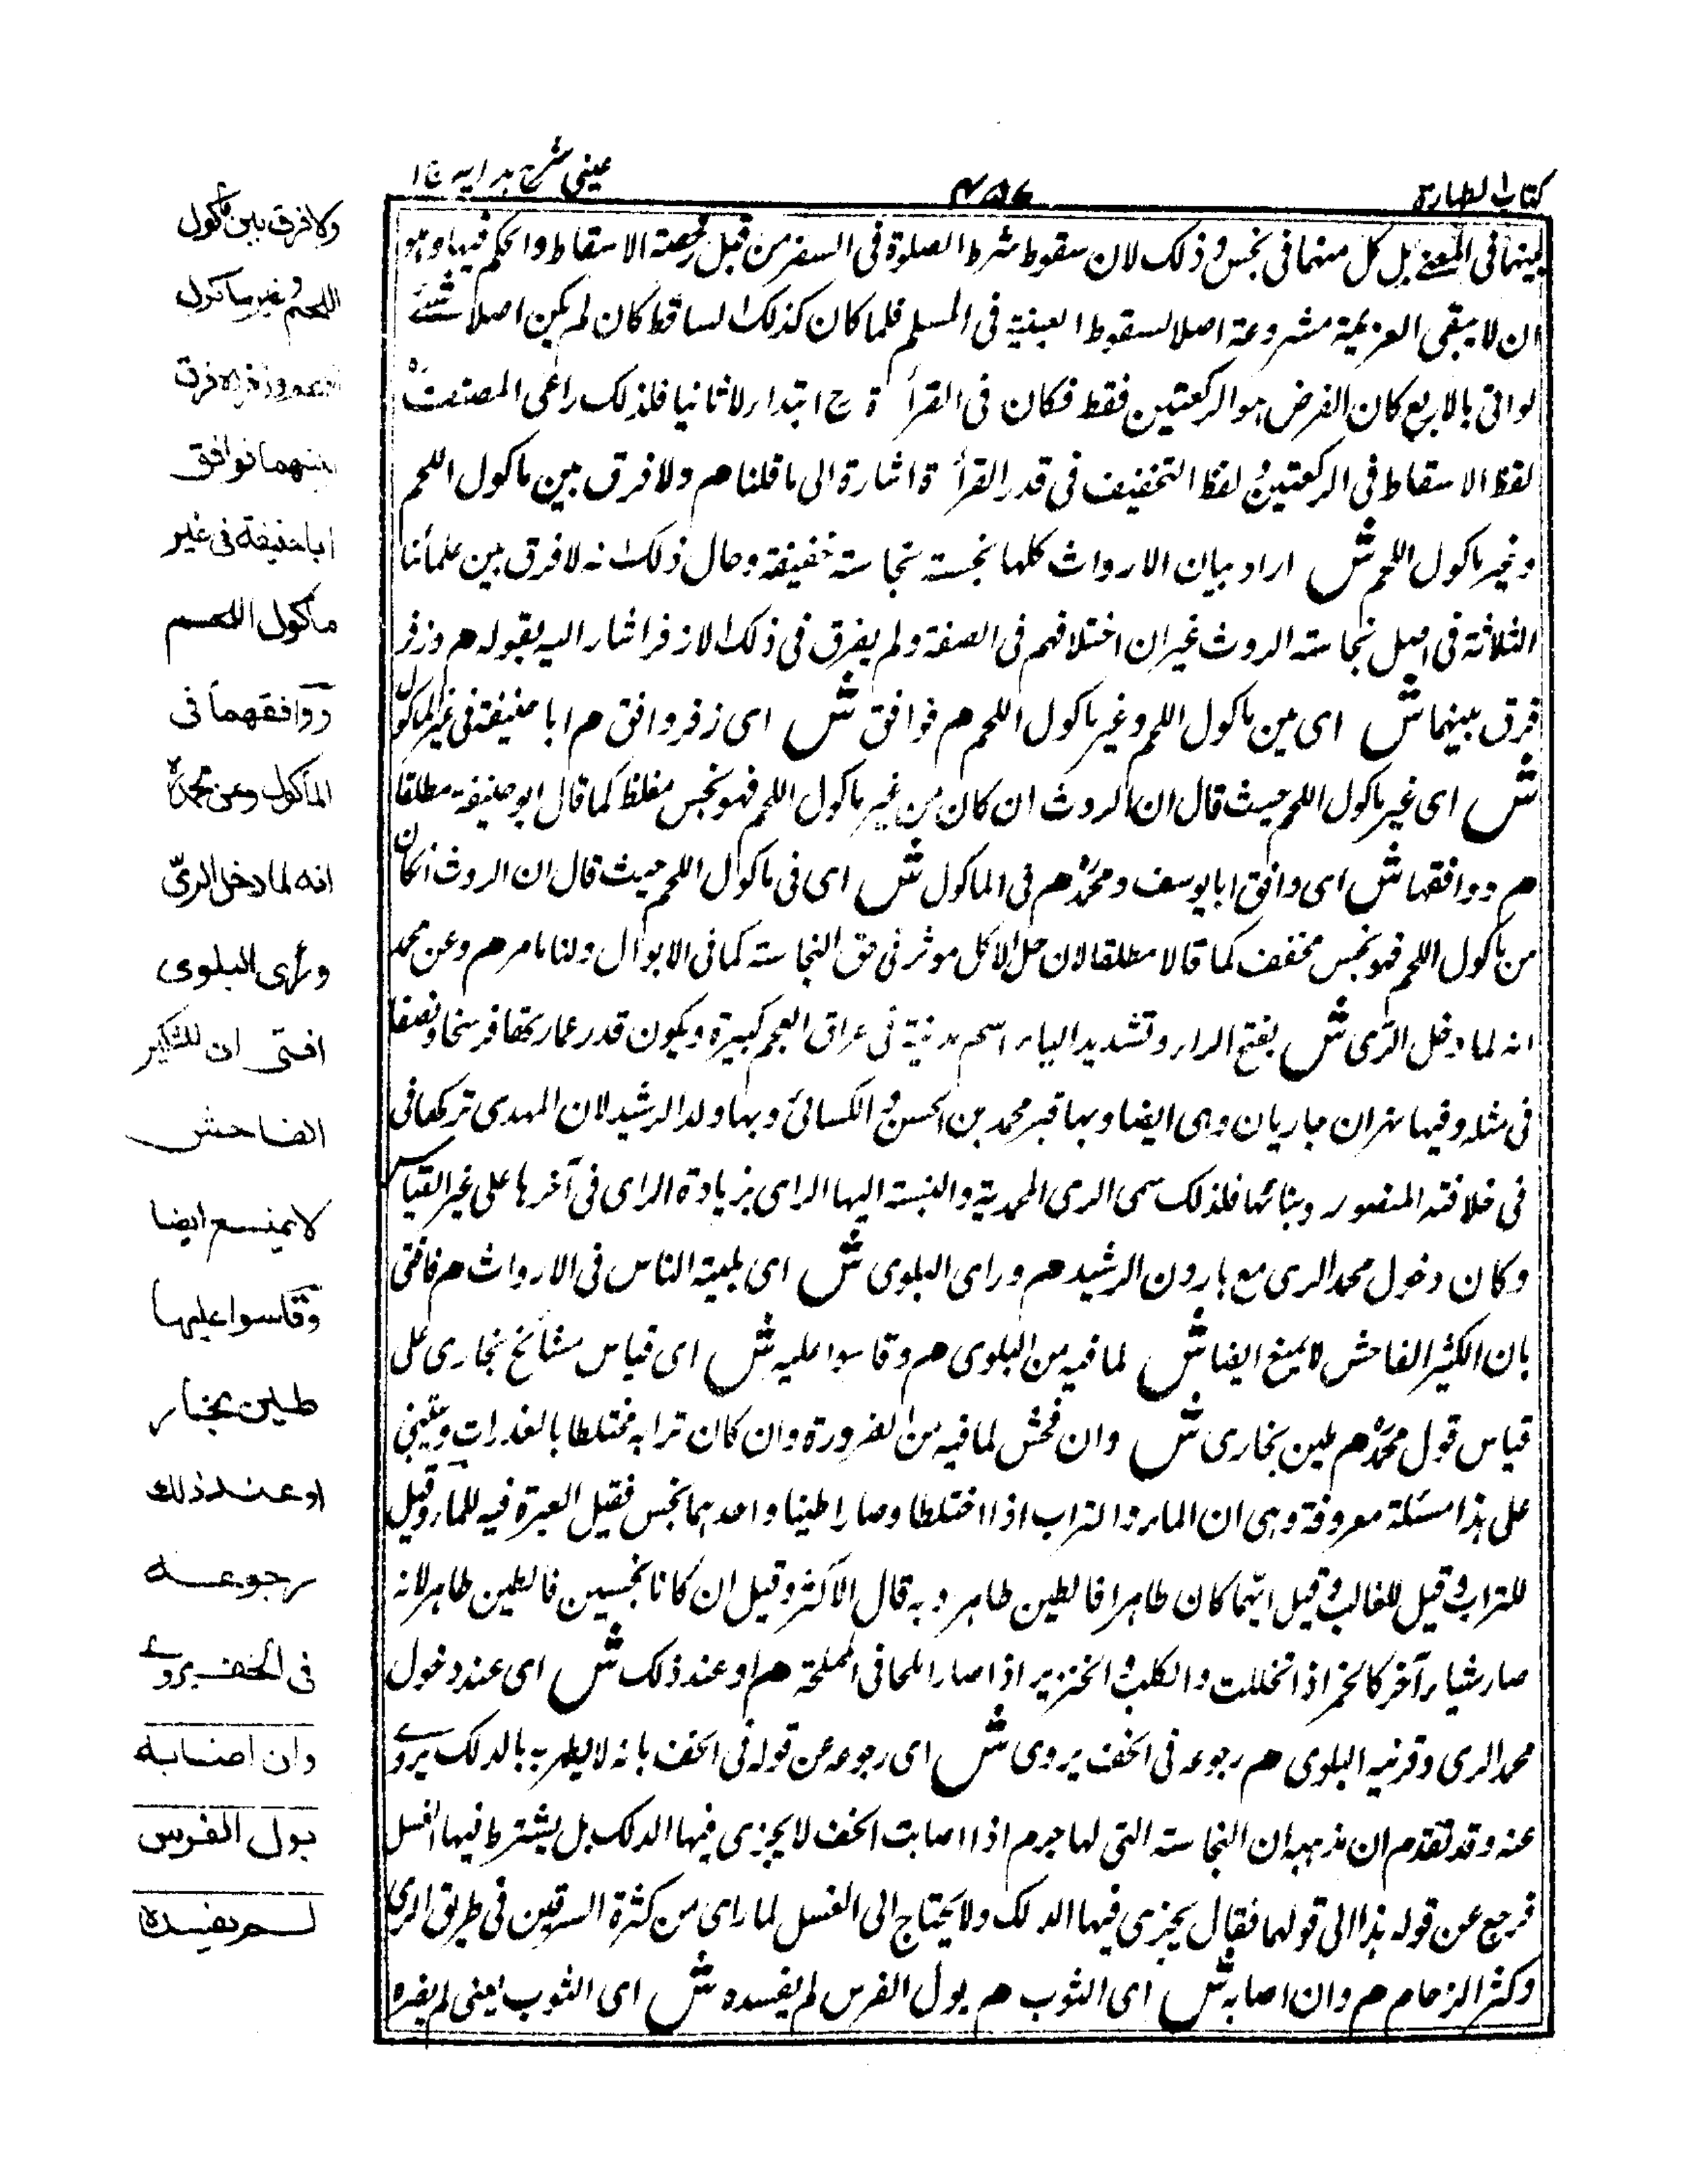 كتاب الطهارة
عينى شرح هداية ج ١
بينهما فى المعنى بل كل منهما فى نجس وذلك لان سقوط شرط الصلوة فى السفر من قبل رخصة الاسقاط والحكم فيها وهو
ان لا يبقى العزيمة مشروعة اصلا لسقوط العينية فى المسلم فلما كان كذلك الساقط كان لم يكن اصلا حتى
لو اتى بالاربع كان الفرض هو الركعتين فقط فكان فى القرأة ح ابتداء لا ثانيا فلذلك راعى المصنف
لفظ الاسقاط فى الركعتين و لفظ التخفيف فى قدر القرأة اشارة الى ما قلنا م ولا فرق بين ماكول اللحم
وغير ماكول اللحم ش اراد بيان الارواث كلها نجسته نجاسته خفيفة وحال ذلك انه لا فرق بين علمائنا
الثلاثة فى اصل نجاسته الروث غير ان اختلافهم فى الصفة ولم يفرق فى ذلك الا زفر اشار اليه بقوله م وزفر
فرق بينهما ش اى بين ماكول اللحم وغير ماكول اللحم م فوافق ش اى زفر وافق م ابا حنيفة فى غير الماكول
ش اى غير ماكول اللحم حيث قال ان الروث ان كان من غير ماكول اللحم فهو نجس مغلظ كما قال ابو حنيفة مطلقا
م ووافقهما ش اى وافق ابا يوسف ومحمد م فى الماكول ش اى فى ماكول اللحم حيث قال ان الروث انكان
من ماكول اللحم فهو نجس مخفف كما قالا مطلقا لان حل الاكل موثر فى حق النجاسته كما فى الابوال ولنا ما مر م وعن محمد
انه لما دخل الرى ش بفتح الراء وتشديد الياء اسم مدينة فى عراق العجم كبيرة ويكون قدر عمارتها فرسخا ونصفا
فى مثله وفيها نهران جاريان وهى ايضا وبها قبر محمد بن الحسن و الكسائى وبها ولد الرشيد لان المهدى تركها فى
فى خلافته المنصور وبنائها فلذلك سمى الرى المحمدية والنسبته اليها الرازى بزيادة الزاى فى آخرها على غير القياس
وكان دخول محمد الرى مع هارون الرشيد م وراى البلوى ش اى بلية الناس فى الارواث م فافتى
بان الكثير الفاحش لا يمنع ايضا ش لما فيه من البلوى م وقاسوا عليه ش اى قياس مشائخ بخارى على
قياس قول محمد م طين بخارى ش وان فحش لما فيه من الضرورة وان كان ترابه مختلطا بالعذرات ويبتنى
على هذا مسئلة معروفة وهى ان الماء والتراب اذا اختلطا وصارا طينا واحدهما نجس فقيل العبرة فيه للماء وقيل
للتراب وقيل للغالب وقيل ايهما كان طاهرا فالطين طاهر وبه قال الاكثر وقيل ان كانا نجسين فالطين طاهر لانه
صار شياء آخر كالخمر اذا تخللت والكلب و الخنزير اذا صارا ملحا فى المملحة م وعند ذلك ش اى عند دخول
محمد الرى وقرنيه البلوى م رجوعه فى الخف يروى ش اى رجوعه عن قوله فى الخف بانه لا يطهر به بالدلك يروى
عنه وقد تقدم ان مذهبه ان النجاسته التى لها جرم اذا اصابت الخف لا يجزى فيها الدلك بل يشترط فيها الغسل
فرجع عن قوله هذا الى قولهما فقال يجزى فيها الدلك ولا يحتاج الى الغسل لما راى من كثرة السرقين فى طريق الرى
وكثر الزحام م وان اصابه ش اى الثوب م بول الفرس لم يفسده ش اى الثوب يعنى لم يضره
ولا فرق بين مأكول
اللحم وغير مأكول
اللحم وزفرره فرق
بينهما فوافق
ابا حنيفة فى غير
مأكول اللحم
ووافقهما فى
المأكول وعن محمدره
انه لما دخل الرىّ
ورأى البلوى
افتى ان الكثير
الفاحش
لا يمنع ايضا
وقاسوا عليها
طين بخار
ا وعند ذلك
رجوعه
فى الخف يروى
وان اصابه
بول الفرس
لم يفسده